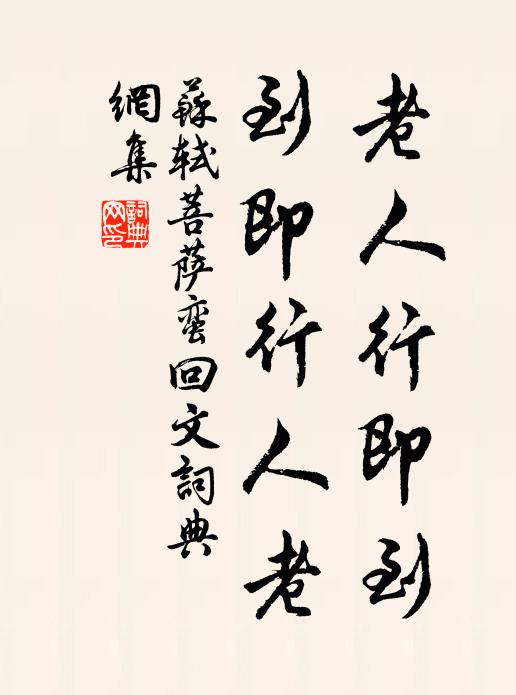 老人行即到
到即行人老
蘇軾菩薩蛮回文詞典
網集
詞典
网印